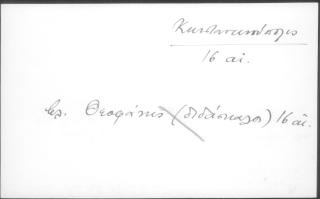 Κωνσταντινούπολις
16 αἰ.
βλ. Θεοφάνης (διδάσκαλος) 16 αἰ.